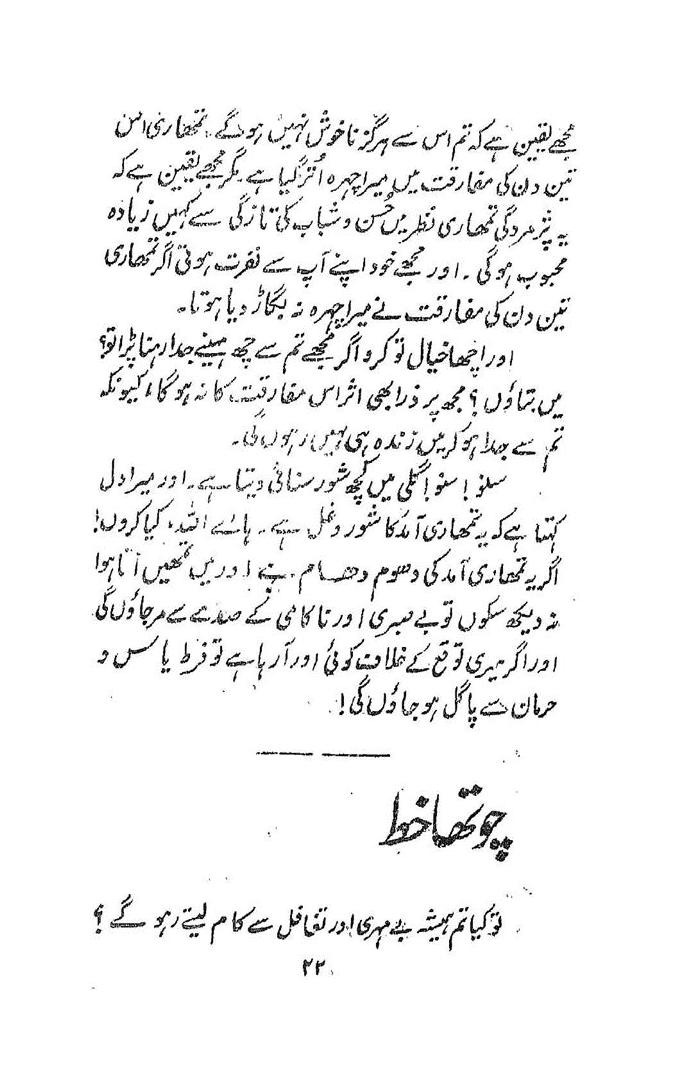 مجھے یقین ہے کہ تم اس سے ہرگز ناخوش نہیں ہوگے۔ تمھاری اس
تین دن کی مفارقت میں میرا چہرہ اُتر گیا ہے۔ مگر مجھے یقین ہے کہ
یہ پژمردگی تمھاری نظر میں حُسن و شباب کی تازگی سے کہیں زیادہ
محبوب ہوگی۔ اور مجھے خود اپنے آپ سے نفرت ہوتی اگر تمھاری
تین دن کی مفارقت نے میرا چہرہ نہ بگاڑ دیا ہوتا۔
اور اچھا خیال تو کرو اگر مجھے تم سے چھ مہینے جدا رہنا پڑا تو؟
میں بتاؤں؟ مجھ پر ذرا بھی اثر اس مفارقت کا نہ ہوگا، کیونکہ
تم سے جدا ہو کر میں زندہ ہی نہیں رہوں گی۔
سنو! سنو! گلی میں کچھ شور سنائی دیتا ہے۔ اور میرا دل
کہتا ہے کہ یہ تمھاری آمد کا شور و غل ہے۔ ہائے اللہ، کیا کروں!
اگر یہ تمھاری آمد کی دھوم دھام ہے اور میں تمھیں آتا ہوا
نہ دیکھ سکوں تو بے صبری اور ناکامی کے صدمے سے مر جاؤں گی
اور اگر میری توقع کے خلاف کوئی اور آ رہا ہے تو فرط یاس و
حرمان سے پاگل ہو جاؤں گی!
چوتھا خط
تو کیا تم ہمیشہ بے مہری اور تغافل سے کام لیتے رہو گے؟
۲۲